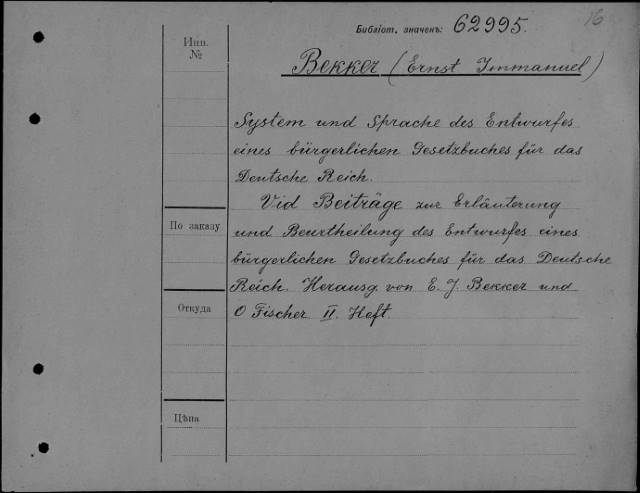 16
Библіот. значенъ: 62995.
Инв.
№
Bekker (Ernst Immanuel)
System und Sprache des Entwurfes
eines bürgerlichen Gesetzbuches für das
Deutsche Reich.
Vid Beiträge zur Erläuterung
und Beurtheilung des Entwurfes eines
По заказу
bürgerlichen Gesetzbuches für das Deutsche
Reich. Herausg. von E. J. Bekker und
Откуда
O Fischer. II. Heft.
Цѣна